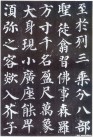 至於列三乘分八部
聖徒翕習佛事森羅
方寸千名盈尺萬類
大身現小廣座能卑
須彌之容欻入芥子